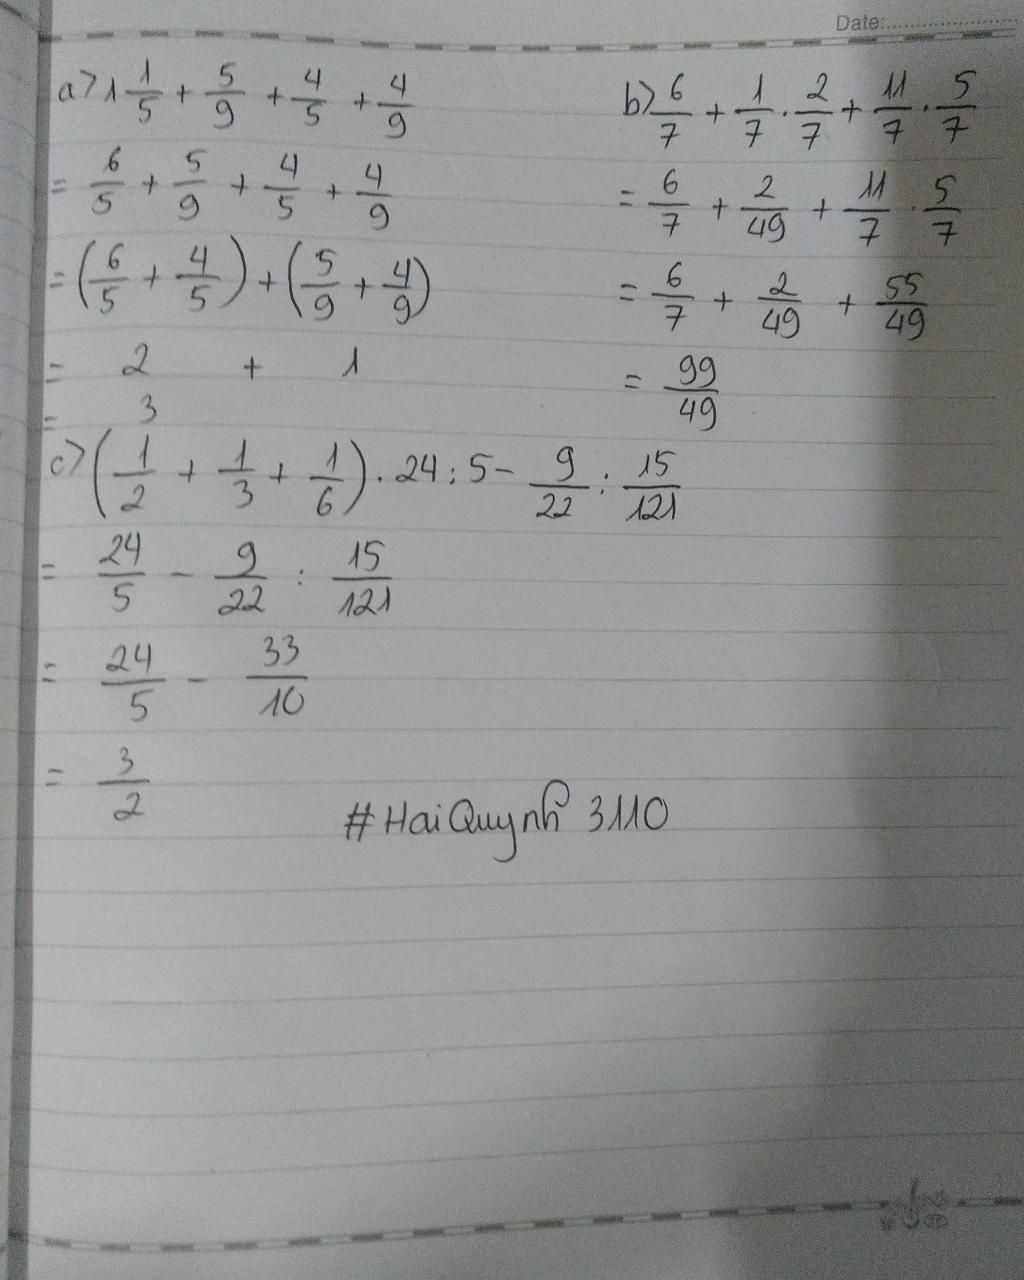 Date:
a> 1 1/5 + 5/9 + 4/5 + 4/9
= 6/5 + 5/9 + 4/5 + 4/9
= (6/5 + 4/5) + (5/9 + 4/9)
= 2 + 1
= 3
b> 6/7 + 1/7 . 2/7 + 11/7 . 5/7
= 6/7 + 2/49 + 11/7 . 5/7
= 6/7 + 2/49 + 55/49
= 99/49
c> (1/2 + 1/3 + 1/6) . 24 : 5 - 9/22 : 15/121
= 24/5 - 9/22 : 15/121
= 24/5 - 33/10
= 3/2
#HaiQuynh 3110